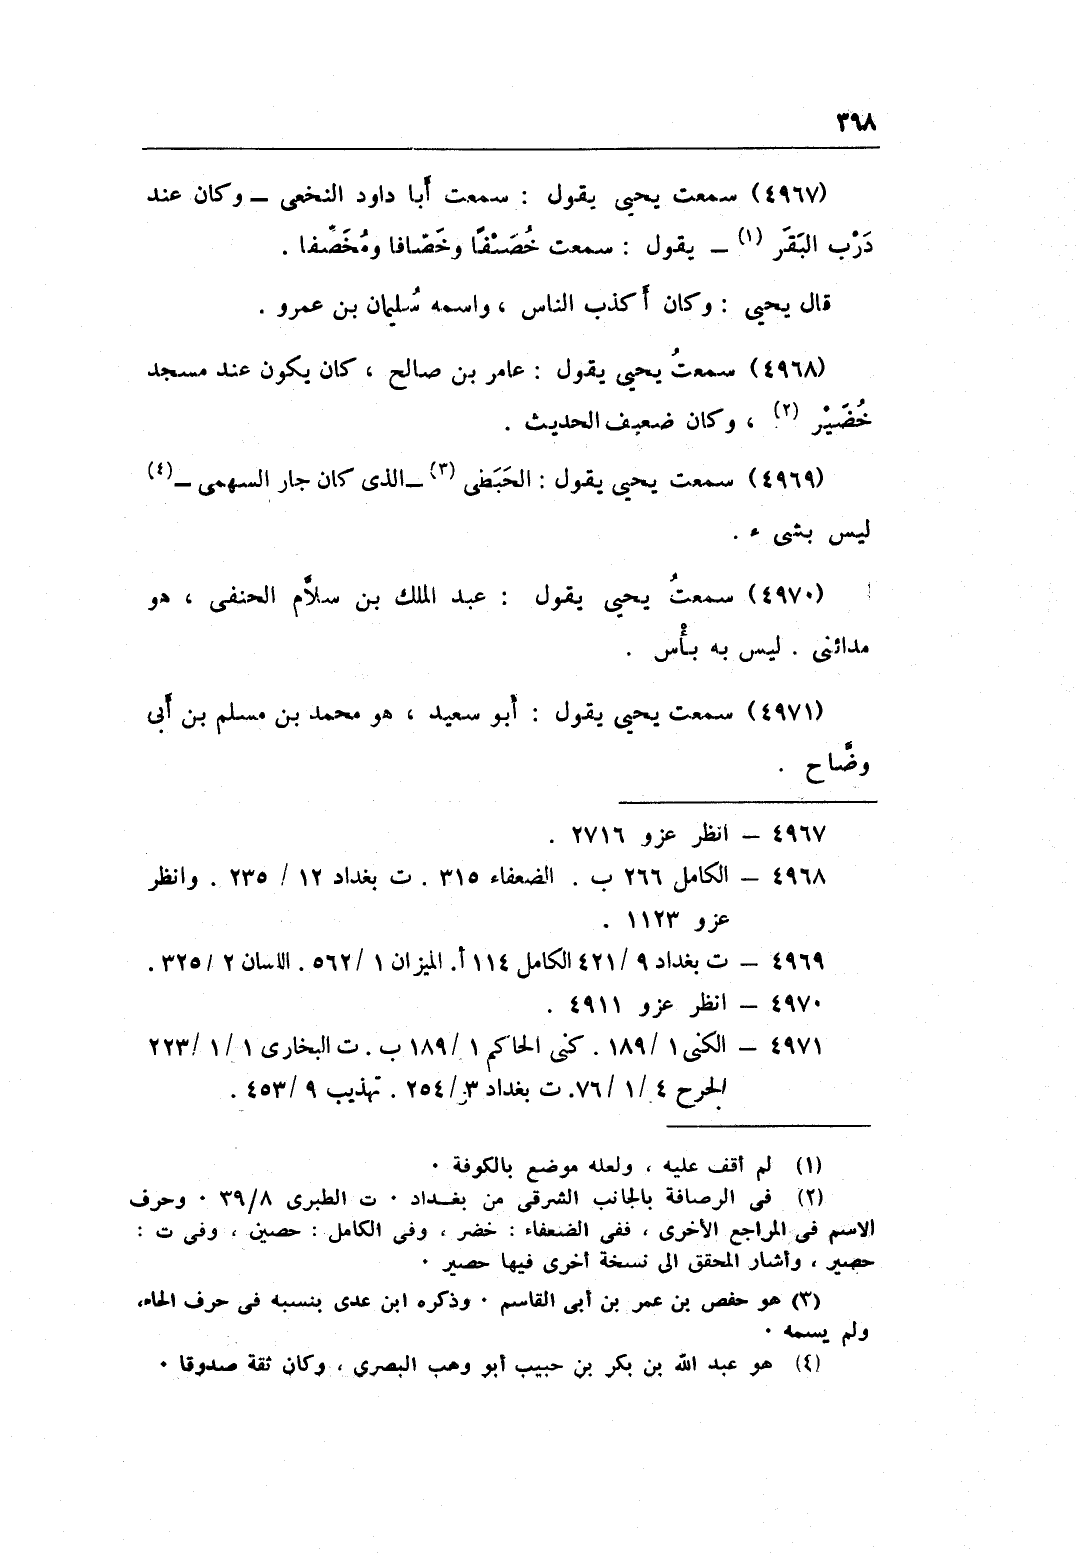 ٣٩٨
(٤٩٦٧) سمعت يحيى يقول : سمعت أبا داود النخعى ــ وكان عند
دَرْب البَقَر (١) ــ يقول : سمعت خُصَيْفًا وخَصَّافا ومُخَصِّفا .
قال يحيى : وكان أكذب الناس ، واسمه سُليمان بن عمرو .
(٤٩٦٨) سمعتُ يحيى يقول : عامر بن صالح ، كان يكون عند مسجد
خُضَيْر (٢) ، وكان ضعيف الحديث .
(٤٩٦٩) سمعت يحيى يقول : الحَبَطى (٣) ــ الذى كان جار السهمى ــ (٤)
ليس بشىء .
(٤٩٧٠) سمعتُ يحيى يقول : عبد الملك بن سلاَّم الحنفى ، هو
مدائنى . ليس به بأْس .
(٤٩٧١) سمعت يحيى يقول : أبو سعيد ، هو محمد بن مسلم بن أبى
وضَّاح .
٤٩٦٧ ــ انظر عزو ٢٧١٦ .
٤٩٦٨ ــ الكامل ٢٦٦ ب . الضعفاء ٣١٥ . ت بغداد ١٢ / ٢٣٥ . وانظر
عزو ١١٢٣ .
٤٩٦٩ ــ ت بغداد ٩ /٤٢١ الكامل ١١٤ أ. الميزان ١ /٥٦٢ . اللسان ٢ /٣٢٥ .
٤٩٧٠ ــ انظر عزو ٤٩١١ .
٤٩٧١ ــ الكنى ١ /١٨٩ . كنى الحاكم ١ /١٨٩ ب . ت البخارى ١ /١ /٢٢٣
الجرح ٤ /١ /٧٦. ت بغداد ٣ /٢٥٤ . تهذيب ٩ /٤٥٣ .
(١) لم أقف عليه ، ولعله موضع بالكوفة .
(٢) فى الرصافة بالجانب الشرقى من بغداد . ت الطبرى ٣٩/٨ . وحرف
الاسم فى المراجع الأخرى ، ففى الضعفاء : خضر ، وفى الكامل : حصين ، وفى ت :
حصير ، وأشار المحقق الى نسخة أخرى فيها حصير .
(٣) هو حفص بن عمر بن أبى القاسم . وذكره ابن عدى بنسبه فى حرف الحاء،
ولم يسمه .
(٤) هو عبد الله بن بكر بن حبيب أبو وهب البصرى ، وكان ثقة صدوقا .